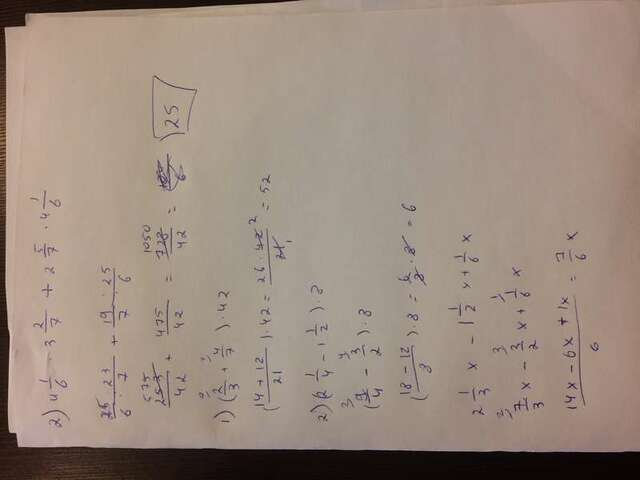 2) 4 1/6 · 3 2/7 + 2 5/7 · 4 1/6
25 · 23 / 6 · 7 + 19 · 25 / 7 · 6
575 / 42 + 475 / 42 = 1050 / 42 = 25
1) (2/3 + 4/7) · 42
(14 + 12 / 21) · 42 = 26 · 42 2 / 21 1 = 52
2) (2 1/4 - 1 1/2) · 8
(9/4 - 3/2) · 8
(18 - 12 / 8) · 8 = 6/8 · 8 = 6
2 1/3 x - 1 1/2 x + 1/6 x
7/3 x - 3/2 x + 1/6 x
14x - 6x + 1x / 6 = 7/6 x